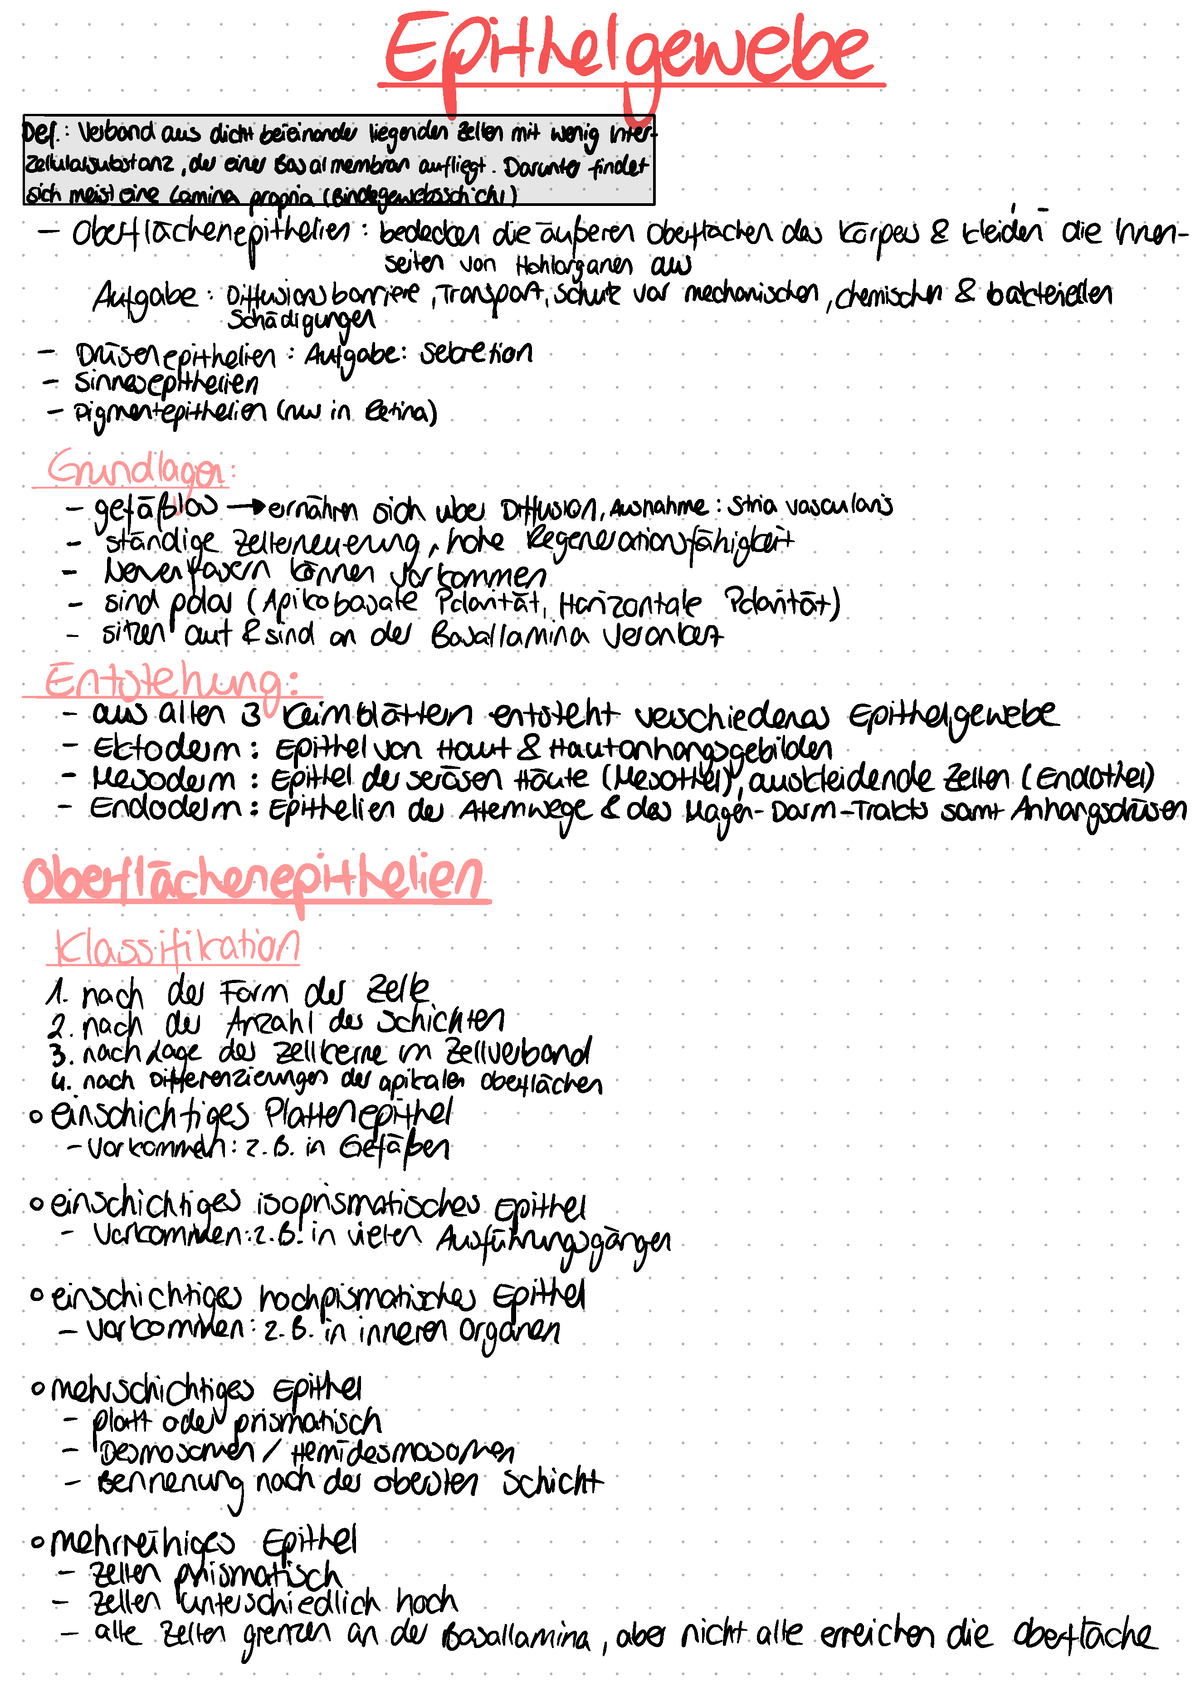 Epithelgewebe
Def.: Verband aus dicht beieinander liegenden Zellen mit wenig Inter-
zellularsubstanz, der einer Basalmembran aufliegt. Darunter findet
sich meist eine Lamina propria (Bindegewebsschicht)
- Oberflächenepithelien: bedecken die äußeren Oberflächen des Körpers & kleiden die Innen-
seiten von Hohlorganen aus
Aufgabe: Diffusionsbarriere, Transport, Schutz vor mechanischen, chemischen & bakteriellen
Schädigungen
- Drüsenepithelien: Aufgabe: Sekretion
- Sinnesepithelien
- Pigmentepithelien (nur in Retina)
Grundlagen:
- gefäßlos → ernähren sich über Diffusion, Ausnahme: Stria vascularis
- ständige Zellerneuerung, hohe Regenerationsfähigkeit
- Nervenfasern können vorkommen
- sind polar (Apikobasale Polarität, Horizontale Polarität)
- sitzen auf & sind an der Basallamina verankert
Entstehung:
- aus allen 3 Keimblättern entsteht verschiedenes Epithelgewebe
- Ektoderm: Epithel von Haut & Hautanhangsgebilden
- Mesoderm: Epithel der serösen Häute (Mesothel), auskleidende Zellen (Endothel)
- Endoderm: Epithelien der Atemwege & des Magen-Darm-Trakts samt Anhangsdrüsen
Oberflächenepithelien
Klassifikation
1. nach der Form der Zelle
2. nach der Anzahl der Schichten
3. nach Lage der Zellkerne im Zellverband
4. nach Differenzierungen der apikalen Oberflächen
o einschichtiges Plattenepithel
- Vorkommen: z.B. in Gefäßen
o einschichtiges isoprismatisches Epithel
- Vorkommen: z.B. in vielen Ausführungsgängen
o einschichtiges hochpismatisches Epithel
- Vorkommen: z.B. in inneren Organen
o mehrschichtiges Epithel
- platt oder prismatisch
- Desmosomen / Hemidesmosomen
- Bennenung nach der obersten Schicht
o mehrreihiges Epithel
- Zellen prismatisch
- Zellen unterschiedlich hoch
- alle Zellen grenzen an der Basallamina, aber nicht alle erreichen die Oberfläche